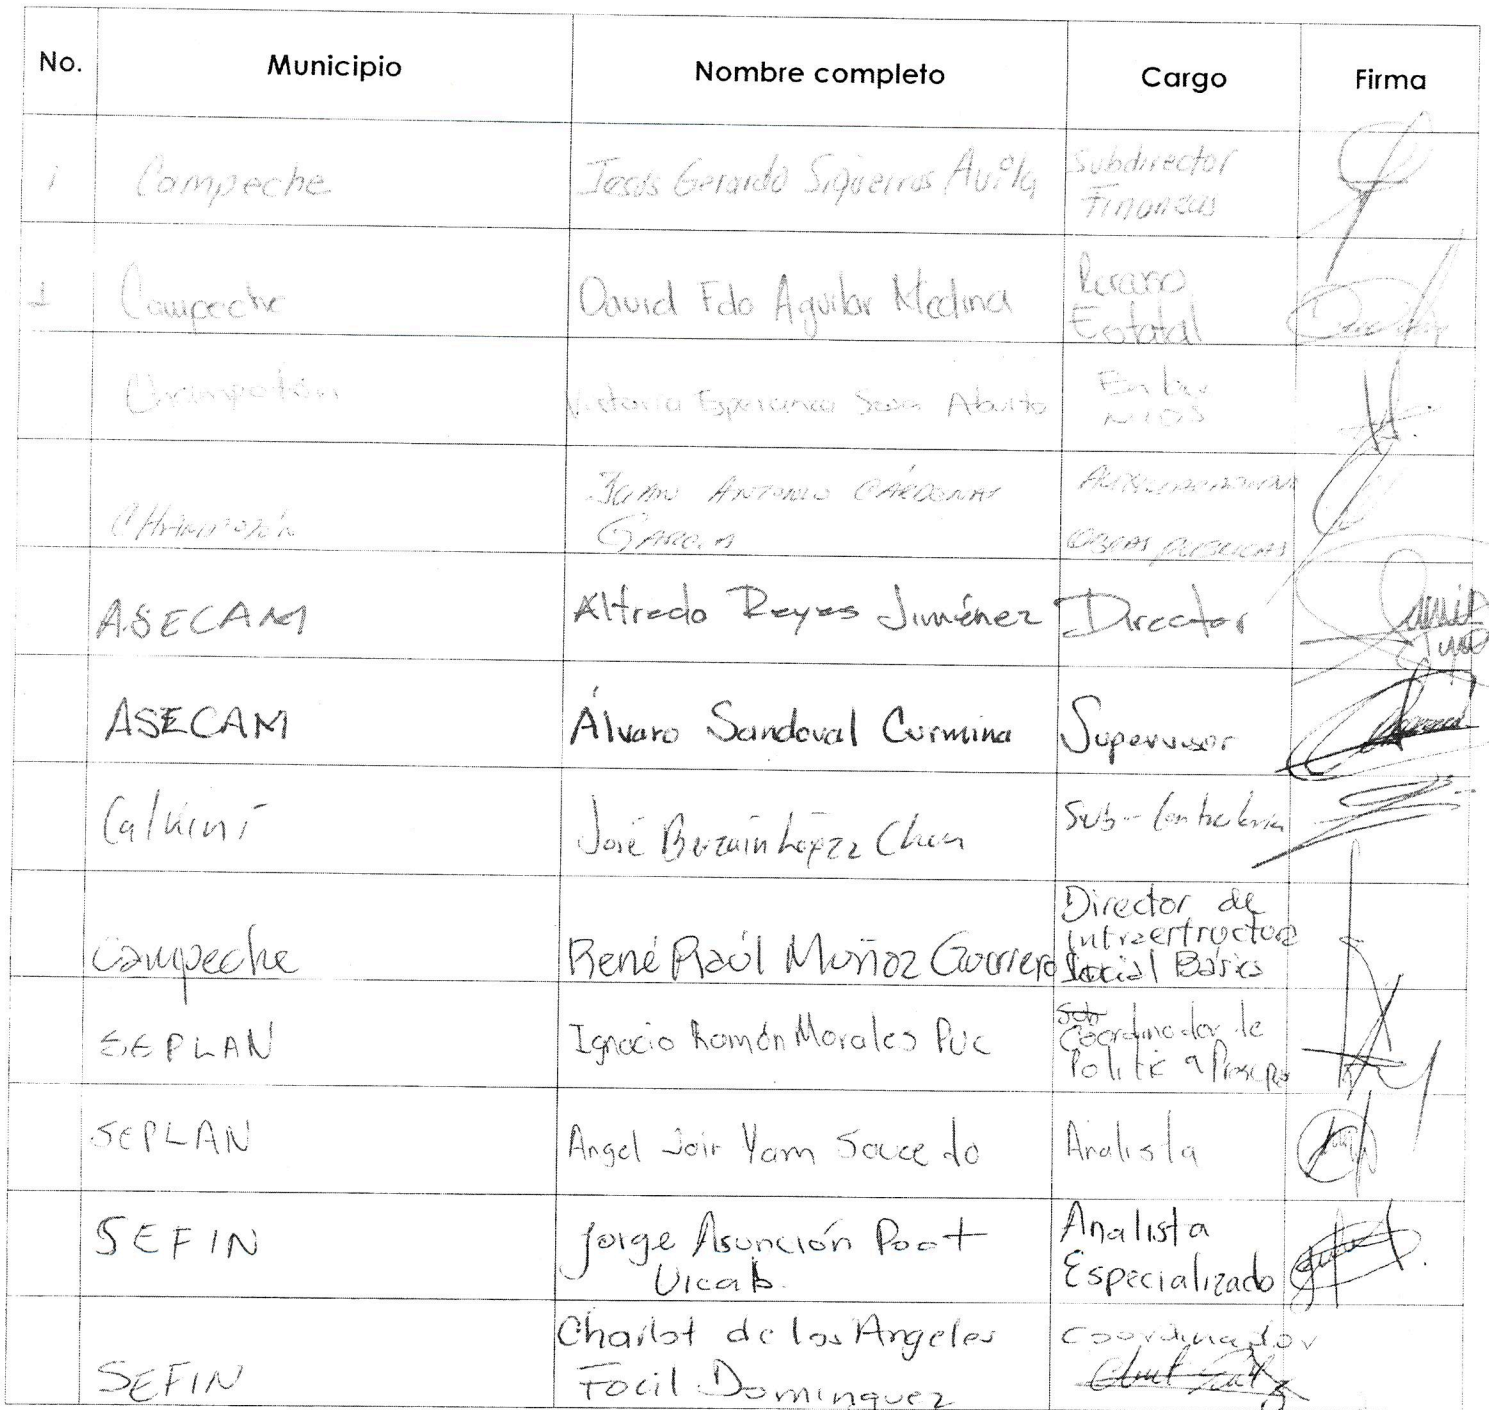 No. Municipio Nombre completo Cargo Firma
1 Campeche Jesús Gerardo Siqueiros Avila Subdirector
Finanzas
Campeche David Fdo Aguilar Medina
Estatal
Champotón Victoria Esperanza Sosa Aburto Enlace
JUAN ANTONIO CÁRDENAS
CHAMPOTÓN GARCIA OBRAS PUBLICAS
ASECAM Alfredo Reyes Jiménez Director
ASECAM Álvaro Sandoval Curmina Supervisor
Calkiní José Berzain López Chan Sub-Contraloria
Director de
Infraestructura
Campeche René Raúl Muñoz Guerrero Social Básica
Sub
SEPLAN Ignacio Román Morales Puc Coordinador de
Politic
SEPLAN Angel Jair Yam Saucedo Analista
SEFIN Jorge Asunción Poot Analista
Uicab. Especializado
Charlot de los Angeles Coordinador
SEFIN Focil Dominguez